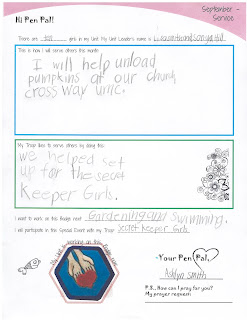 September -
Service
Hi Pen Pal!
There are ten girls in my Unit. My Unit Leaders name is
This is how I will serve others this month:
I will help unload
pumpkins at our church
cross way umc.
My Troop likes to serve others by doing this:
we helped set
up for the secret
Keeper Girls.
I want to work on this Badge next: Gardening and swimming.
I will participate in this Special Event with my Troop: Secret keeper Girls
-Your Pen Pal,
Smith
P.S. How can I pray for you?
My prayer request: